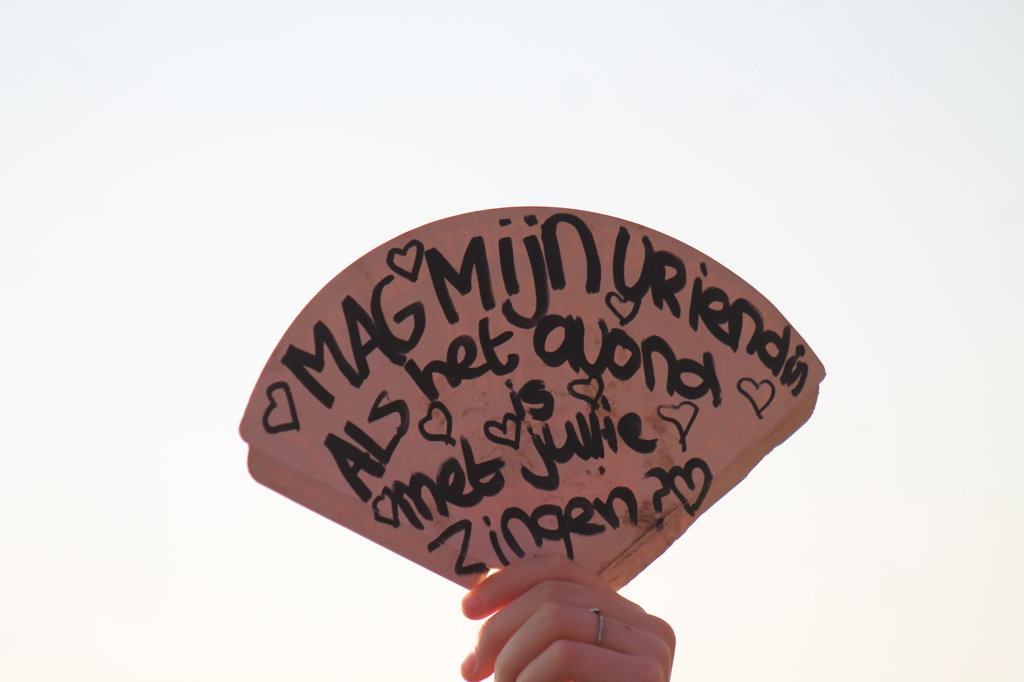 MAG Mijn vriendin
ALS het avond
is
met jullie
zingen?